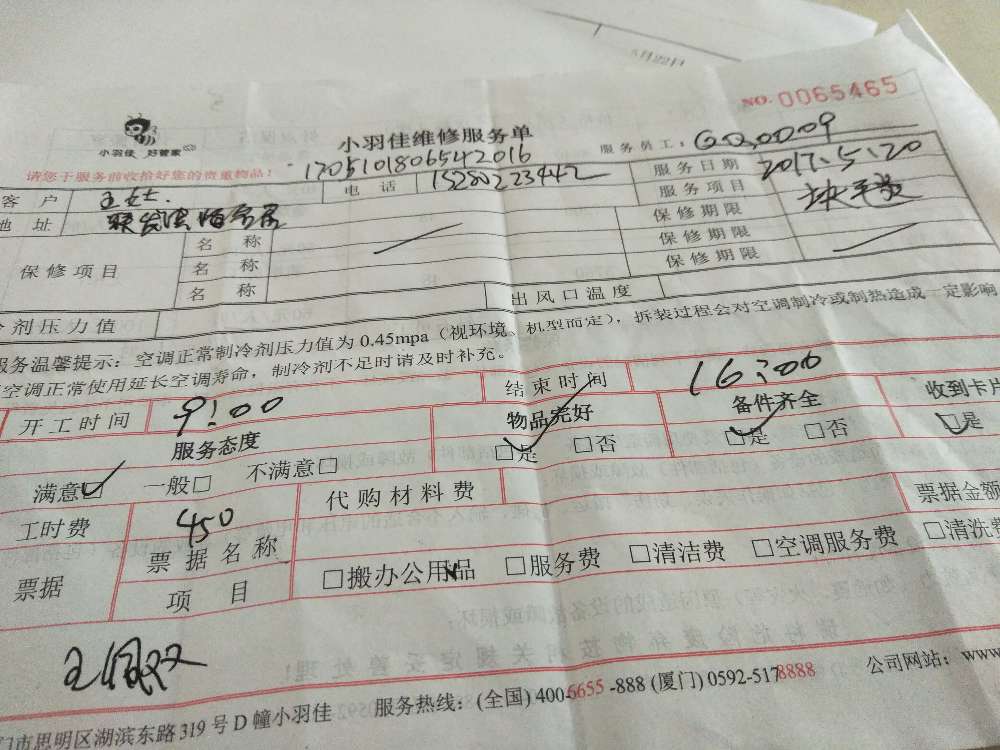 5月22日
NO. 0065465
小羽佳维修服务单
小羽佳 好管家
服务员工:
请您于服务前收拾好您的贵重物品!
1705101806542016
服务日期 2017.5.20
客户 王女士. 电话 15280223442
服务项目
地址
保修项目 名称 保修期限
名称 保修期限
名称 保修期限
冷剂压力值 出风口温度
服务温馨提示:空调正常制冷剂压力值为0.45mpa(视环境、机型而定),拆装过程会对空调制冷或制热造成一定影响
空调正常使用延长空调寿命,制冷剂不足时请及时补充。
开工时间 9:00 结束时间 16:00
服务态度 物品完好 备件齐全 收到卡片
满意□ 一般□ 不满意□ □是 □否 □是 □否 □是
工时费 450 代购材料费 票据金额
票据 票据名称 □搬办公用品 □服务费 □清洁费 □空调服务费 □清洗费
项目
王佩双
门市思明区湖滨东路319号D幢小羽佳 服务热线:(全国) 400-6655-888 (厦门) 0592-5178888 公司网站:www